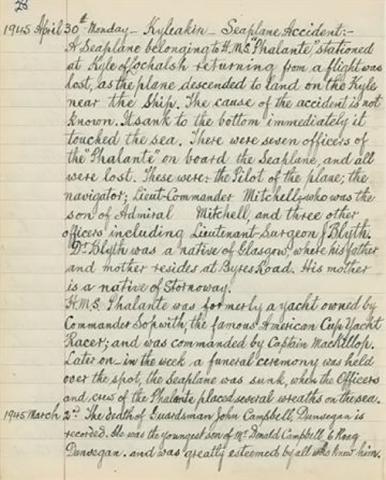 28
1945 April 30th Monday - Kyleakin - Seaplane Accident:-
A Seaplane belonging to H.M.S. "Phalante" stationed
at Kyle of Lochalsh returning from a flight was
lost, as the plane descended to land on the Kyle
near the Ship. The cause of the accident is not
known. It sank to the bottom immediately it
touched the sea. There were seven officers of
the "Phalante" on board the Seaplane, and all
were lost. These were: the Pilot of the plane; the
navigator; Lieut-Commander Mitchell, who was the
son of Admiral Mitchell, and three other
officers including Lieutenant-Surgeon J Blyth.
Dr Blyth was a native of Glasgow, where his father
and mother resides at Byres Road. His mother
is a native of Stornoway.
H.M.S. Phalante was formerly a yacht owned by
Commander Sopwith, the famous American Cup Yacht
Racer; and was commanded by Captain MacKillop.
Later on - in the week a funeral ceremony was held
over the spot, the Seaplane was sunk, when the Officers
and crew of the Phalante placed several wreaths on the sea.
1945 March 2nd The death of Guardsman John Campbell, Dunvegan is
recorded. He was the youngest son of Mr Donald Campbell, 6 Roag
Dunvegan. and was greatly esteemed by all who knew him.